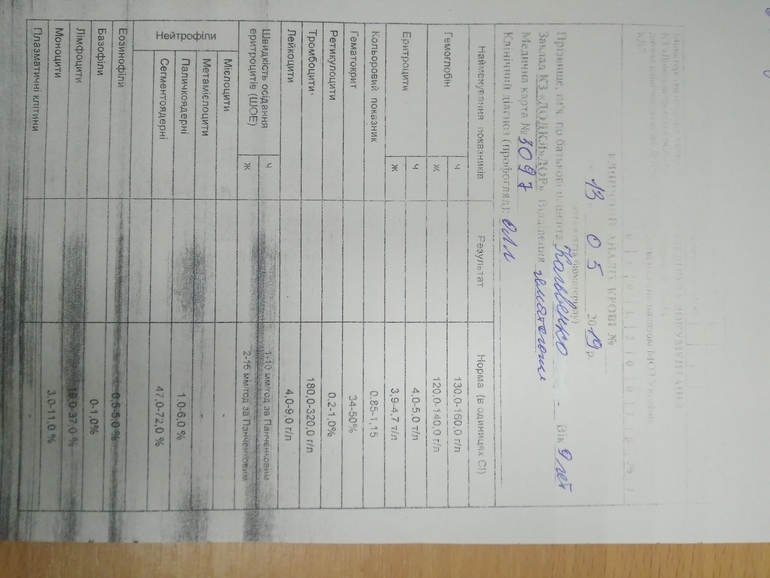 АНАЛІЗ КРОВІ №
13 05 2019 р.
Прізвище, ім'я, по батькові пацієнта Вік 9 лет
Заклад КЗ «ДОДКЛ» ДОР» Відділення гематологи
Медична карта № 3097
Клінічний діагноз (профогляд): ОЛЛ
Найменування показників Результат Норма (в одиницях СІ)
Гемоглобін ч 130,0-160,0 г/л
ж 120,0-140,0 г/л
Еритроцити ч 4,0-5,0 т/л
ж 3,9-4,7 т/л
Кольоровий показник 0,85-1,15
Гематокрит 34-50%
Ретикулоцити 0,2-1,0%
Тромбоцити 180,0-320,0 г/л
Лейкоцити 4,0-9,0 г/л
Швидкість осідання еритроцитів (ШОЕ) ч 1-10 мм/год за Панченковим
ж 2-15 мм/год за Панченковим
Нейтрофіли
Мієлоцити -
Метамієлоцити -
Паличкоядерні 1,0-6,0 %
Сегментоядерні 47,0-72,0 %
Еозинофіли 0,5-5,0 %
Базофіли 0-1,0%
Лімфоцити 19,0-37,0 %
Моноцити 3,0-11,0 %
Плазматичні клітини -